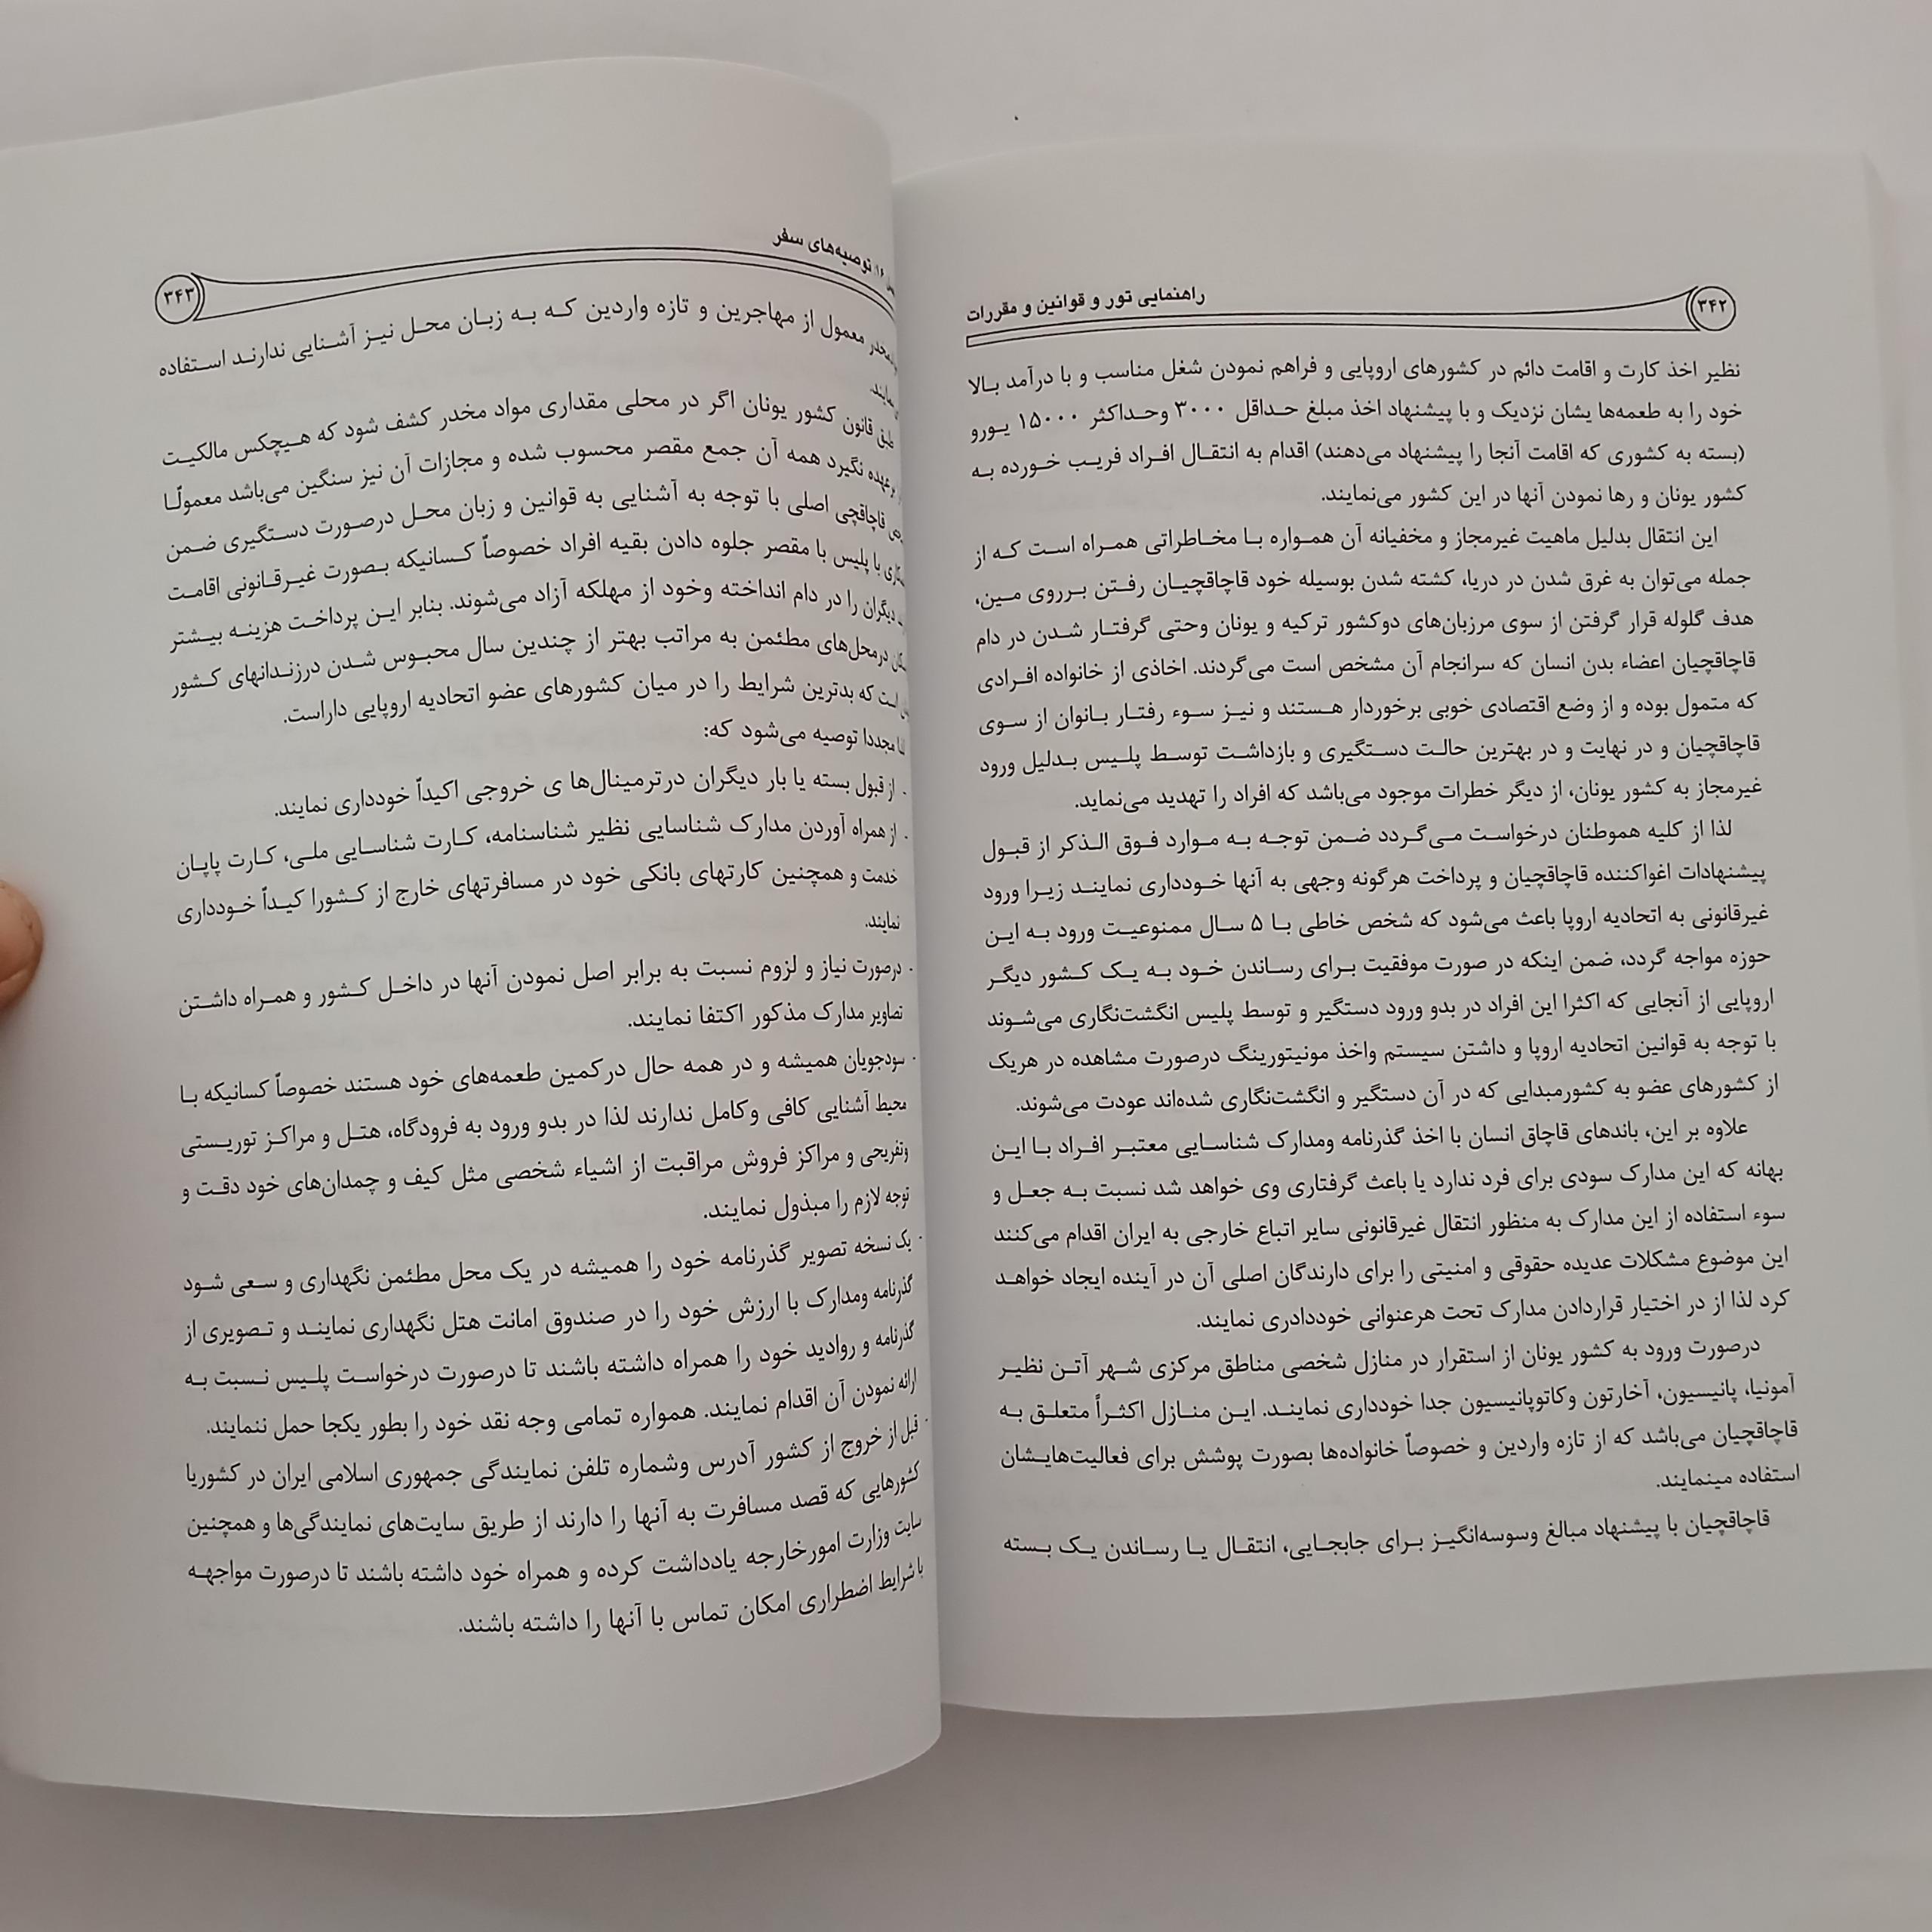 ۳۴۲
راهنمایی تور و قوانین و مقررات
نظیر اخذ کارت و اقامت دائم در کشورهای اروپایی و فراهم نمودن شغل مناسب و با درآمد بالا
خود را به طعمه‌ها یشان نزدیک و با پیشنهاد اخذ مبلغ حداقل ۳۰۰۰ وحداکثر ۱۵۰۰۰ یورو
(بسته به کشوری که اقامت آنجا را پیشنهاد می‌دهند) اقدام به انتقال افراد فریب خورده به
کشور یونان و رها نمودن آنها در این کشور می‌نمایند.
این انتقال بدلیل ماهیت غیرمجاز و مخفیانه آن همواره با مخاطراتی همراه است که از
جمله می‌توان به غرق شدن در دریا، کشته شدن بوسیله خود قاچاقچیان رفتن برروی مین،
هدف گلوله قرار گرفتن از سوی مرزبان‌های دوکشور ترکیه و یونان وحتی گرفتار شدن در دام
قاچاقچیان اعضاء بدن انسان که سرانجام آن مشخص است می‌گردند. اخاذی از خانواده افرادی
که متمول بوده و از وضع اقتصادی خوبی برخوردار هستند و نیز سوء رفتار بانوان از سوی
قاچاقچیان و در نهایت و در بهترین حالت دستگیری و بازداشت توسط پلیس بدلیل ورود
غیرمجاز به کشور یونان، از دیگر خطرات موجود می‌باشد که افراد را تهدید می‌نماید.
لذا از کلیه هموطنان درخواست می‌گردد ضمن توجه به موارد فوق الذکر از قبول
پیشنهادات اغواکننده قاچاقچیان و پرداخت هرگونه وجهی به آنها خودداری نمایند زیرا ورود
غیرقانونی به اتحادیه اروپا باعث می‌شود که شخص خاطی با ۵ سال ممنوعیت ورود به این
حوزه مواجه گردد، ضمن اینکه در صورت موفقیت برای رساندن خود به یک کشور دیگر
اروپایی از آنجایی که اکثرا این افراد در بدو ورود دستگیر و توسط پلیس انگشت‌نگاری می‌شوند
با توجه به قوانین اتحادیه اروپا و داشتن سیستم واخذ مونیتورینگ درصورت مشاهده در هریک
از کشورهای عضو به کشورمبدایی که در آن دستگیر و انگشت‌نگاری شده‌اند عودت می‌شوند.
علاوه بر این، باندهای قاچاق انسان با اخذ گذرنامه ومدارک شناسایی معتبر افراد با این
بهانه که این مدارک سودی برای فرد ندارد یا باعث گرفتاری وی خواهد شد نسبت به جعل و
سوء استفاده از این مدارک به منظور انتقال غیرقانونی سایر اتباع خارجی به ایران اقدام می‌کنند
این موضوع مشکلات عدیده حقوقی و امنیتی را برای دارندگان اصلی آن در آینده ایجاد خواهد
کرد لذا از در اختیار قراردادن مدارک تحت هرعنوانی خوددادری نمایند.
درصورت ورود به کشور یونان از استقرار در منازل شخصی مناطق مرکزی شهر آتن نظیر
آمونیا، پانیسیون، آخارتون وکاتوپانیسیون جدا خودداری نمایند. این منازل اکثراً متعلق به
قاچاقچیان می‌باشد که از تازه واردین و خصوصاً خانواده‌ها بصورت پوشش برای فعالیت‌هایشان
استفاده مینمایند.
قاچاقچیان با پیشنهاد مبالغ وسوسه‌انگیز برای جابجایی، انتقال یا رساندن یک بسته
۱۶: توصیه‌های سفر
۳۴۳
معمول از مهاجرین و تازه واردین که به زبان محل نیز آشنایی ندارند استفاده
نمایند.
طبق قانون کشور یونان اگر در محلی مقداری مواد مخدر کشف شود که هیچکس مالکیت
برعهده نگیرد همه آن جمع مقصر محسوب شده و مجازات آن نیز سنگین می‌باشد معمولاً
قاچاقچی اصلی با توجه به آشنایی به قوانین و زبان محل درصورت دستگیری ضمن
با پلیس با مقصر جلوه دادن بقیه افراد خصوصاً کسانیکه بصورت غیرقانونی اقامت
دیگران را در دام انداخته وخود از مهلکه آزاد می‌شوند. بنابر این پرداخت هزینه بیشتر
درمحل‌های مطئمن به مراتب بهتر از چندین سال محبوس شدن درزندانهای کشور
است که بدترین شرایط را در میان کشورهای عضو اتحادیه اروپایی داراست.
لذا مجددا توصیه می‌شود که:
- از قبول بسته یا بار دیگران درترمینال‌ها ی خروجی اکیداً خودداری نمایند.
- از همراه آوردن مدارک شناسایی نظیر شناسنامه، کارت شناسایی ملی، کارت پایان
خدمت و همچنین کارتهای بانکی خود در مسافرتهای خارج از کشورا کیداً خودداری
نمایند.
- درصورت نیاز و لزوم نسبت به برابر اصل نمودن آنها در داخل کشور و همراه داشتن
تصاویر مدارک مذکور اکتفا نمایند.
- سودجویان همیشه و در همه حال درکمین طعمه‌های خود هستند خصوصاً کسانیکه با
محیط آشنایی کافی وکامل ندارند لذا در بدو ورود به فرودگاه، هتل و مراکز توریستی
وتفریحی و مراکز فروش مراقبت از اشیاء شخصی مثل کیف و چمدان‌های خود دقت و
توجه لازم را مبذول نمایند.
- یک نسخه تصویر گذرنامه خود را همیشه در یک محل مطئمن نگهداری و سعی شود
گذرنامه ومدارک با ارزش خود را در صندوق امانت هتل نگهداری نمایند و تصویری از
گذرنامه و روادید خود را همراه داشته باشند تا درصورت درخواست پلیس نسبت به
ارائه نمودن آن اقدام نمایند. همواره تمامی وجه نقد خود را بطور یکجا حمل ننمایند.
- قبل از خروج از کشور آدرس وشماره تلفن نمایندگی جمهوری اسلامی ایران در کشوریا
کشورهایی که قصد مسافرت به آنها را دارند از طریق سایت‌های نمایندگی‌ها و همچنین
سایت وزارت امورخارجه یادداشت کرده و همراه خود داشته باشند تا درصورت مواجهه
با شرایط اضطراری امکان تماس با آنها را داشته باشند.